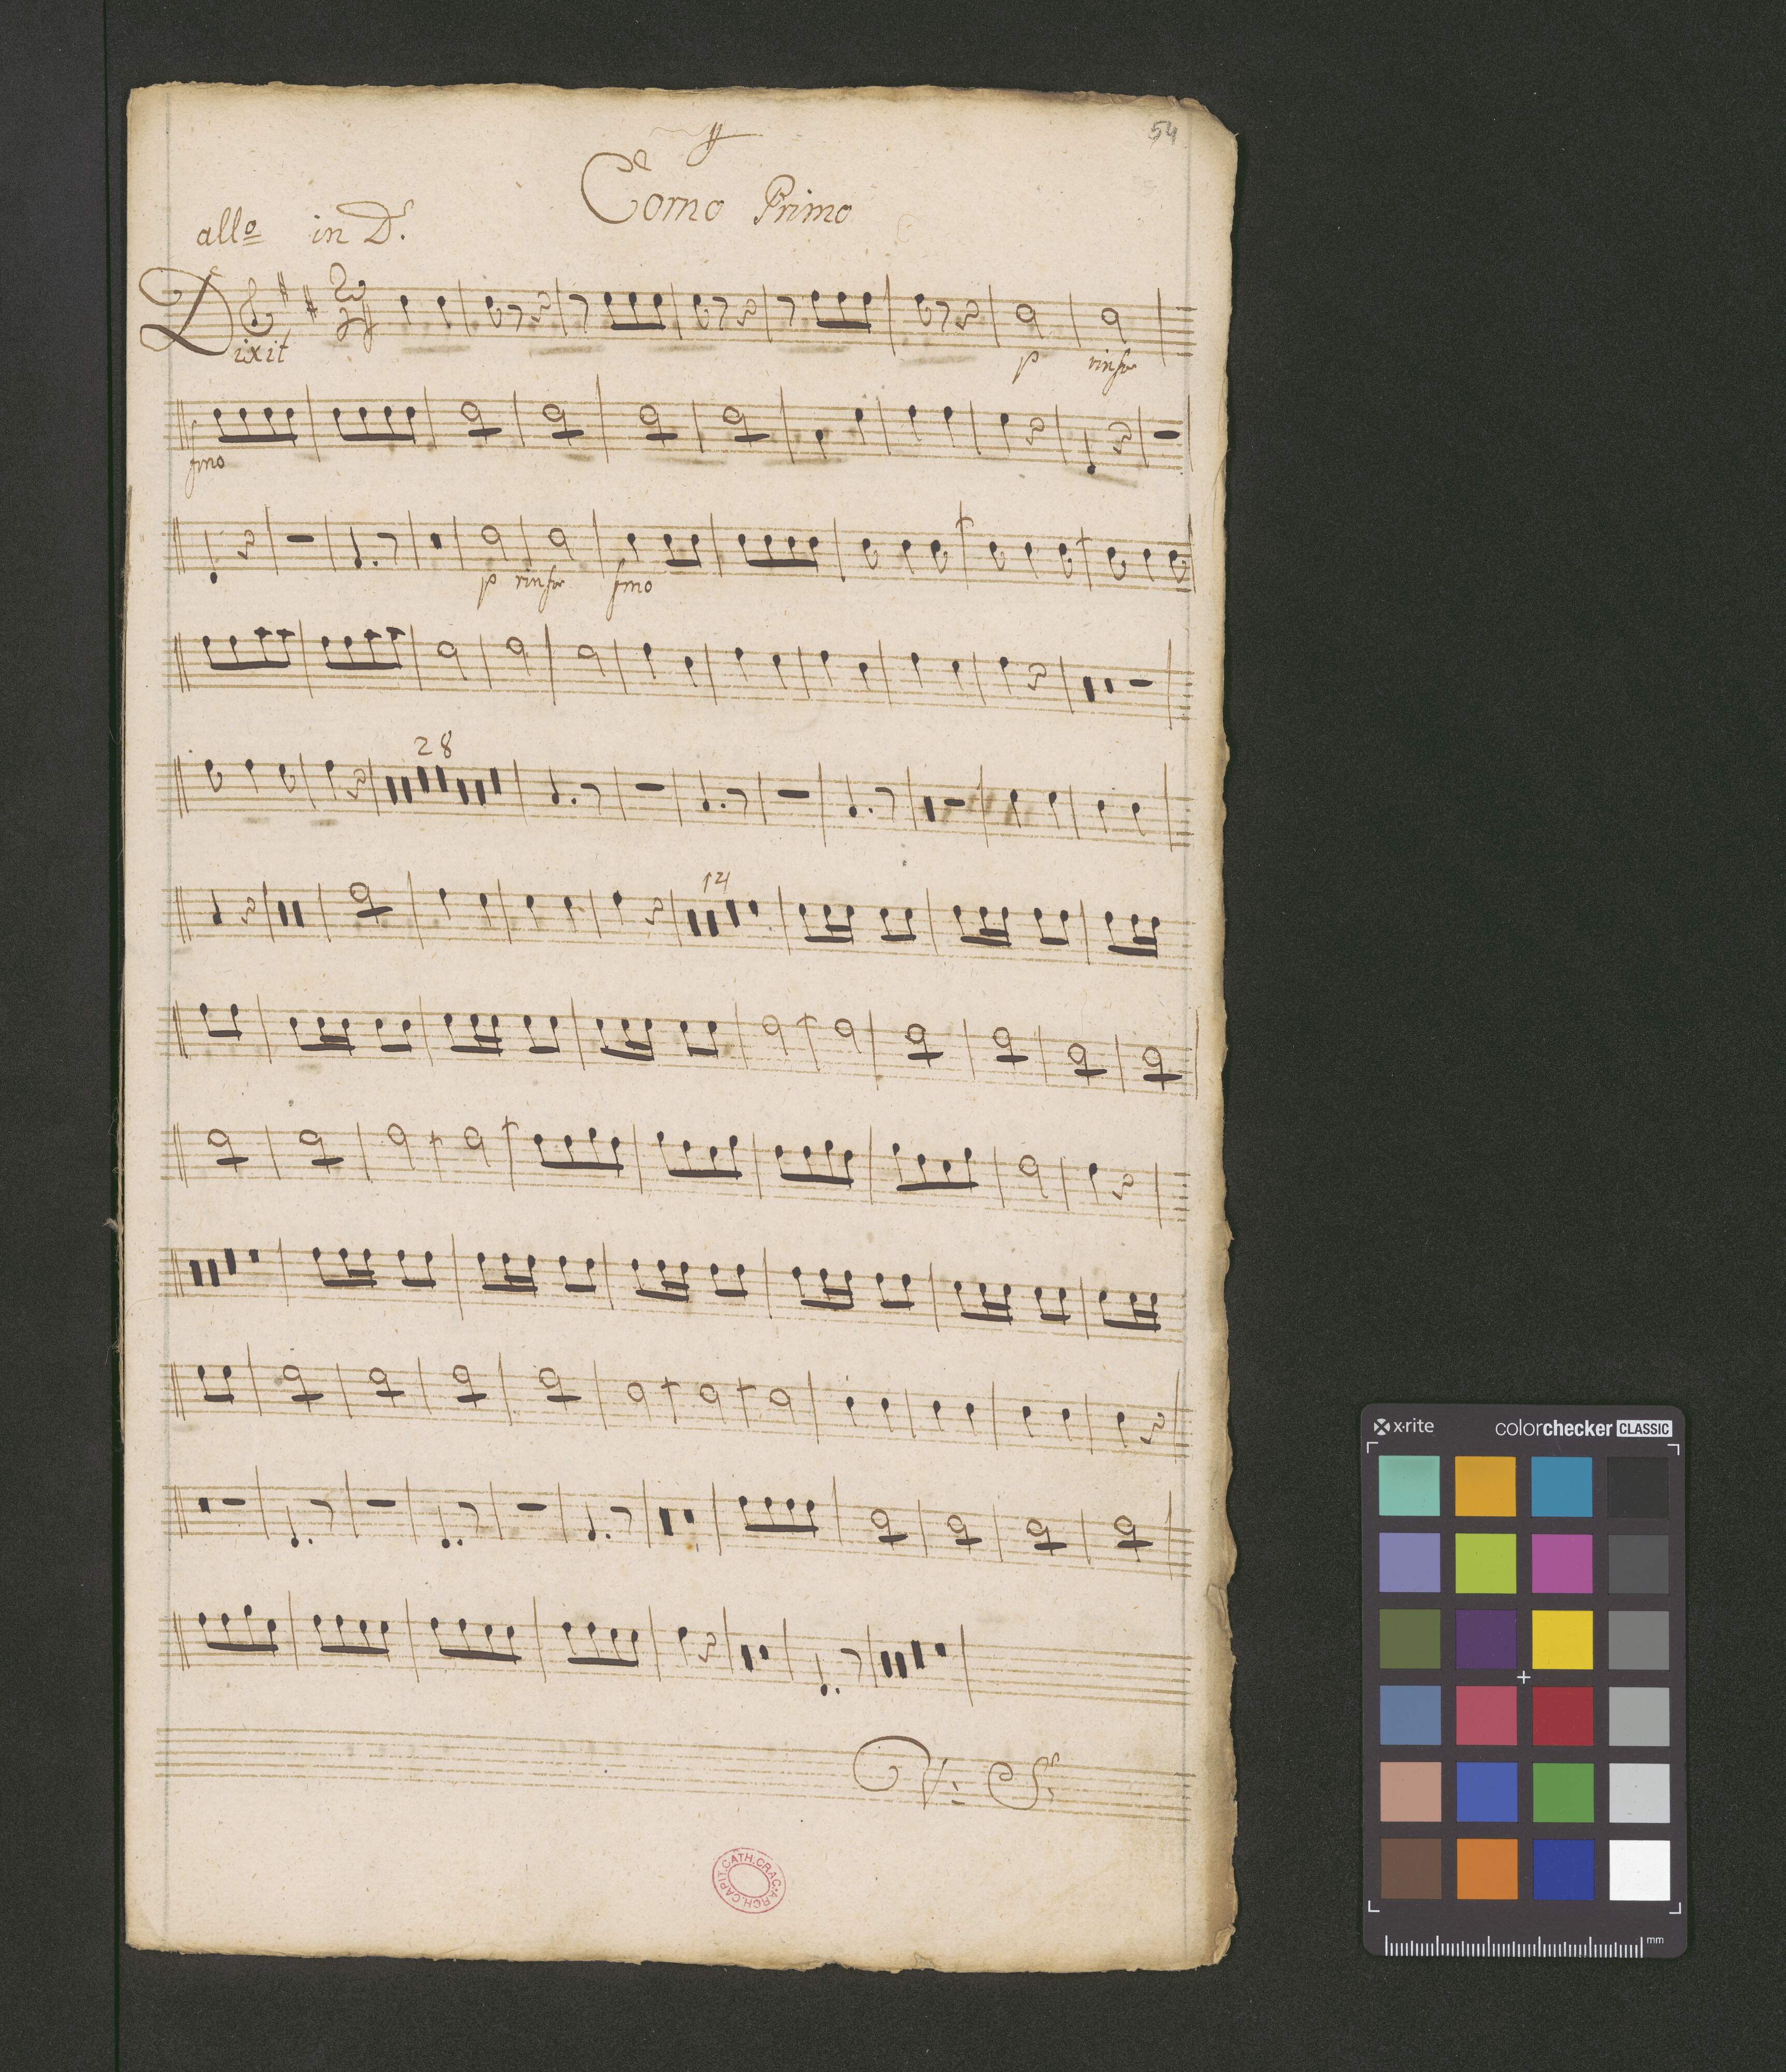 54
Corno Primo
allo in D.
Dixit
2/4
p rinfor
fmo
p rinfor fmo
28
14
V: S:
ARCH.CAPIT.CATH.CRAC.
x·rite colorchecker CLASSIC
mm